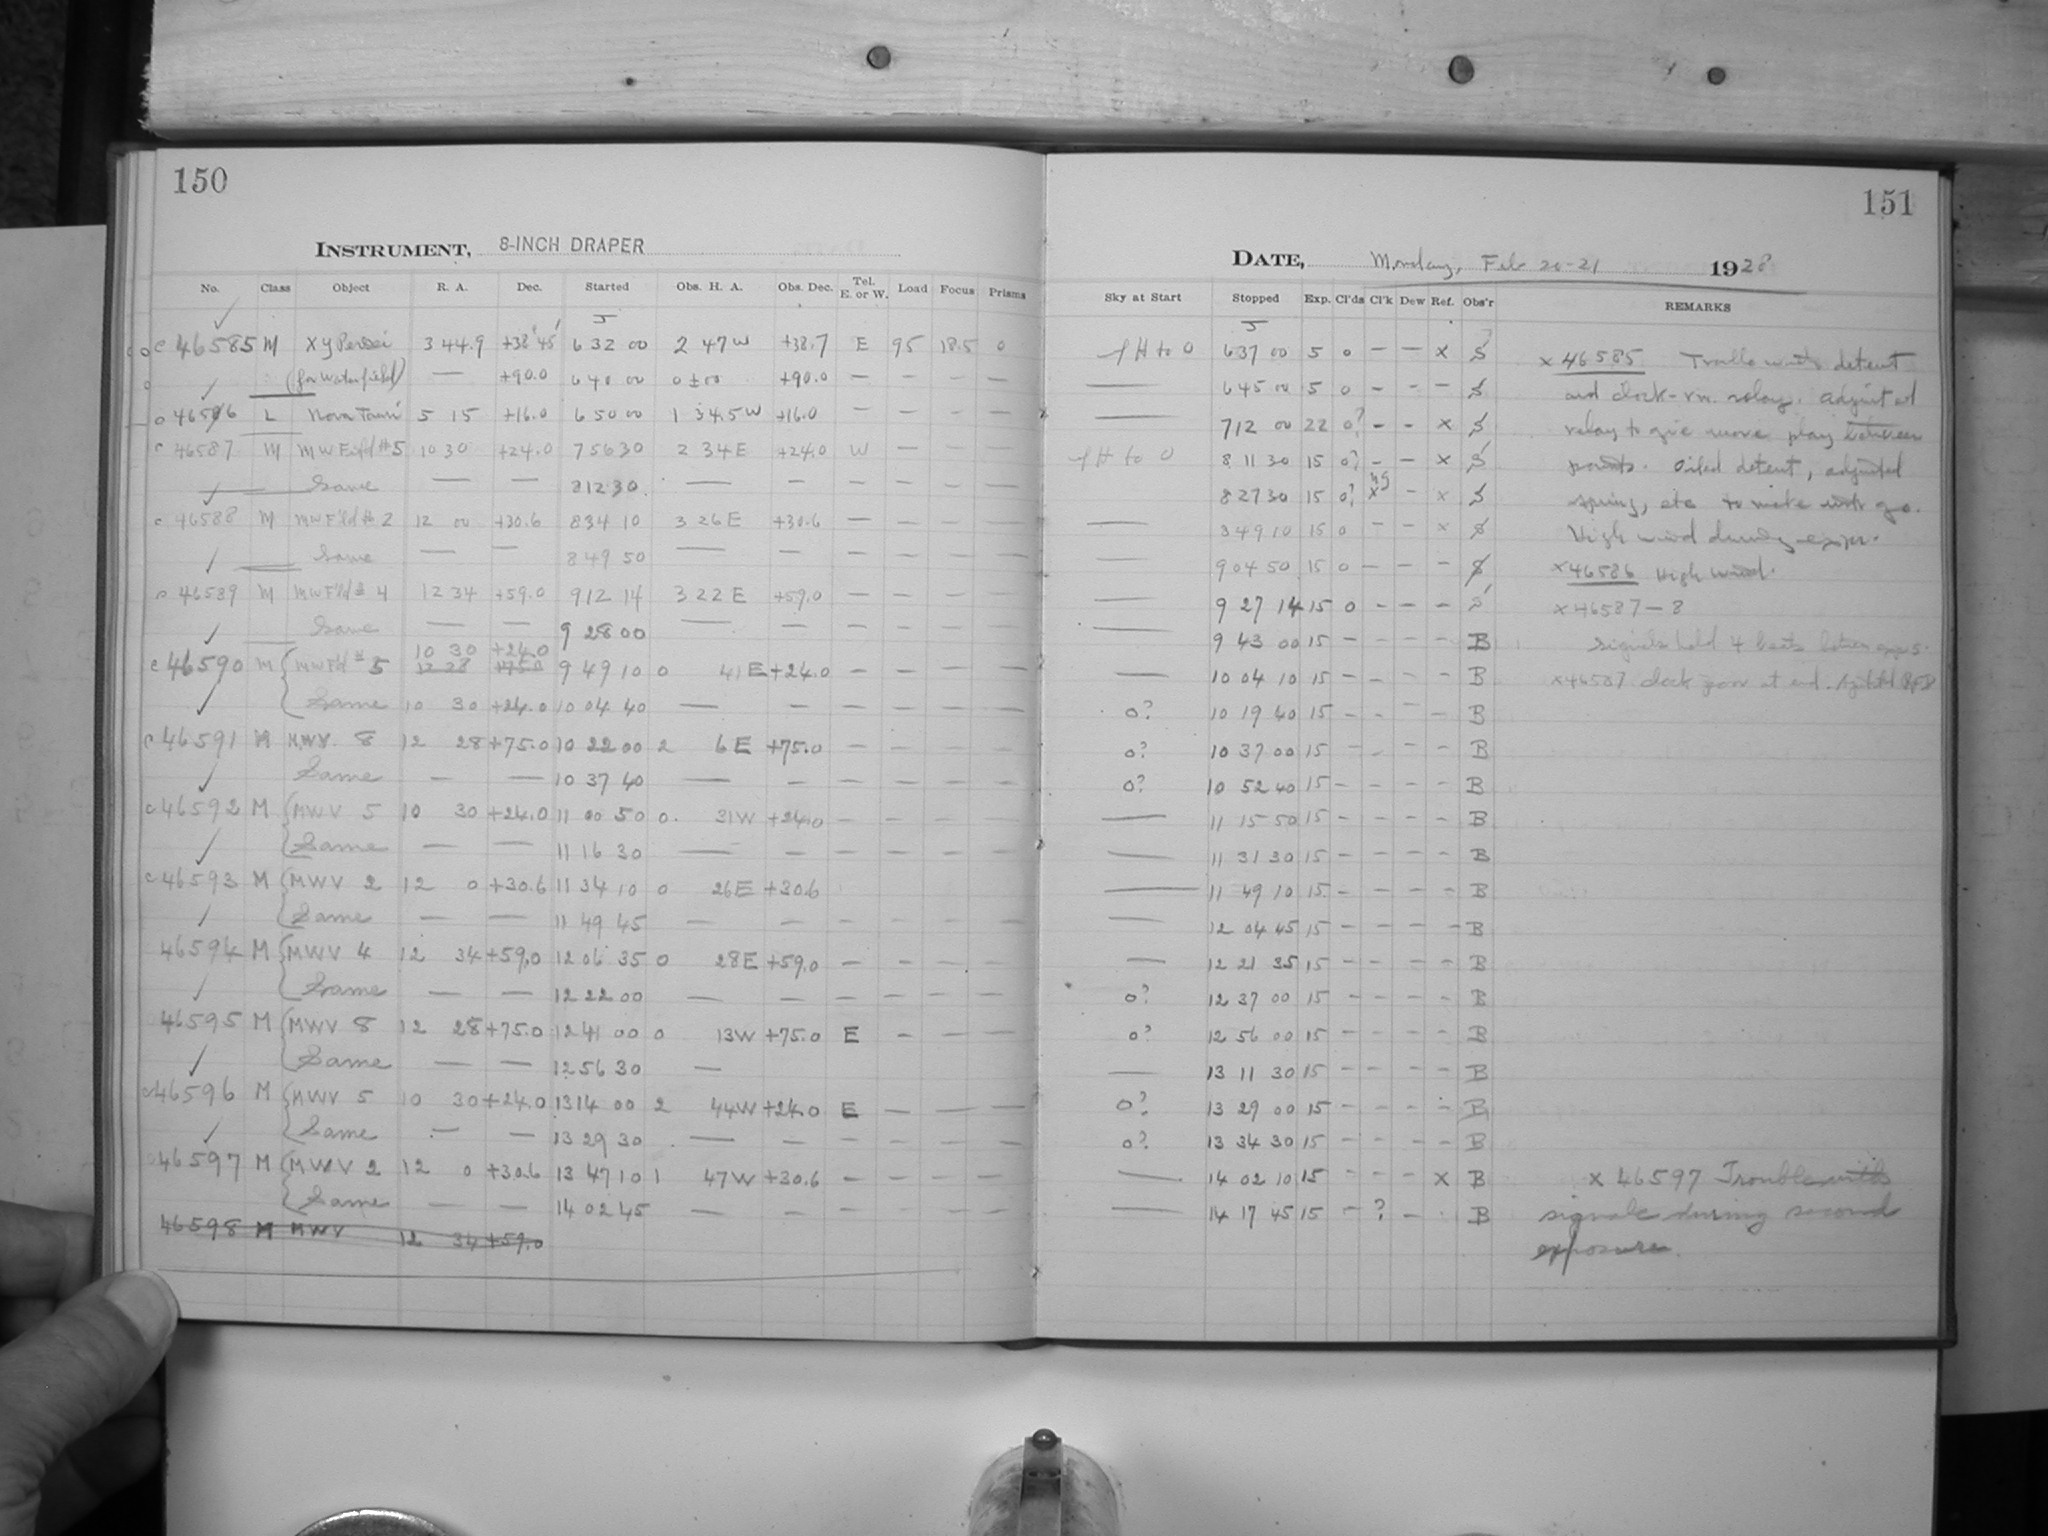 150
INSTRUMENT, 8-INCH DRAPER
No. Class Object R. A. Dec. Started Obs. H. A. Obs. Dec. Tel. E. or W. Load Focus Prisms
46585 M XY Persei 3 44.9 +38°45' 6 32 00 2 47 W +38.7 E 95 18.5 0
(for Waterfield) — +90.0 6 40 00 0 ± 00 +90.0 — — — —
46586 L Nova Tauri 5 15 +16.0 6 50 00 1 34.5 W +16.0 — — — —
46587 M MW Field #5 10 30 +24.0 7 56 30 2 34 E +24.0 W — — —
Same — — 8 12 30 — — — — — —
46588 M MW F'ld # 2 12 00 +30.6 8 34 10 3 26 E +30.6 — — — —
Same — — 8 49 50 — — — — — —
46589 M MW F'ld # 4 12 34 +59.0 9 12 14 3 22 E +59.0 — — — —
Same — — 9 28 00 — — — — — —
10 30 +24.0
46590 M MWF'ld # 5 12 28 +75.0 9 49 10 0 41 E +24.0 — — — —
Same 10 30 +24.0 10 04 40 — — — — — —
46591 M MWV 8 12 28 +75.0 10 22 00 2 6 E +75.0 — — — —
Same — — 10 37 40 — — — — — —
46592 M MWV 5 10 30 +24.0 11 00 50 0 31 W +24.0 — — — —
Same — — 11 16 30 — — — — — —
46593 M MWV 2 12 0 +30.6 11 34 10 0 26 E +30.6
Same — — 11 49 45 — — — — — —
46594 M MWV 4 12 34 +59.0 12 06 35 0 28 E +59.0 — — — —
Same — — 12 22 00 — — — — — —
46595 M MWV 8 12 28 +75.0 12 41 00 0 13 W +75.0 E — — —
Same — — 12 56 30 —
46596 M MWV 5 10 30 +24.0 13 14 00 2 44 W +24.0 E — — —
Same — — 13 29 30 — — — — — —
46597 M MWV 2 12 0 +30.6 13 47 10 1 47 W +30.6 — — — —
Same — — 14 02 45 — — — — — —
46598 M MWV 12 34 +59.0
151
DATE, Monday, Feb 20-21 1928
Sky at Start Stopped Exp. Cl'ds Cl'k Dew Ref. Obs'r REMARKS
H to 0 6 37 00 5 0 — — x S x 46585 Trouble with detent
— 6 45 00 5 0 - - - S and clock-rm. relay. Adjusted
— 7 12 00 22 0? - - x S relay to give more play between
H to 0 8 11 30 15 0? - - x S points. Oiled detent, adjusted
8 27 30 15 0? x - x S spring, etc to make it go.
— 8 49 10 15 0 - - x S High wind during expr.
— 9 04 50 15 0 - - - S x 46586 High wind.
— 9 27 14 15 0 - - - S x 46587-8
— 9 43 00 15 - - - - B Signals held 4 beats between exps.
— 10 04 10 15 - - - - B x 46587 clock poor at end.
0? 10 19 40 15 - - - - B
0? 10 37 00 15 - - - - B
0? 10 52 40 15 - - - - B
— 11 15 50 15 - - - - B
— 11 31 30 15 - - - - B
— 11 49 10 15 - - - - B
— 12 04 45 15 - - - - B
— 12 21 35 15 - - - - B
0? 12 37 00 15 - - - - B
0? 12 56 00 15 - - - - B
— 13 11 30 15 - - - - B
0? 13 29 00 15 - - - - B
0? 13 34 30 15 - - - - B
— 14 02 10 15 - - - x B x 46597 Trouble with
— 14 17 45 15 - ? - B signals during second
exposure.